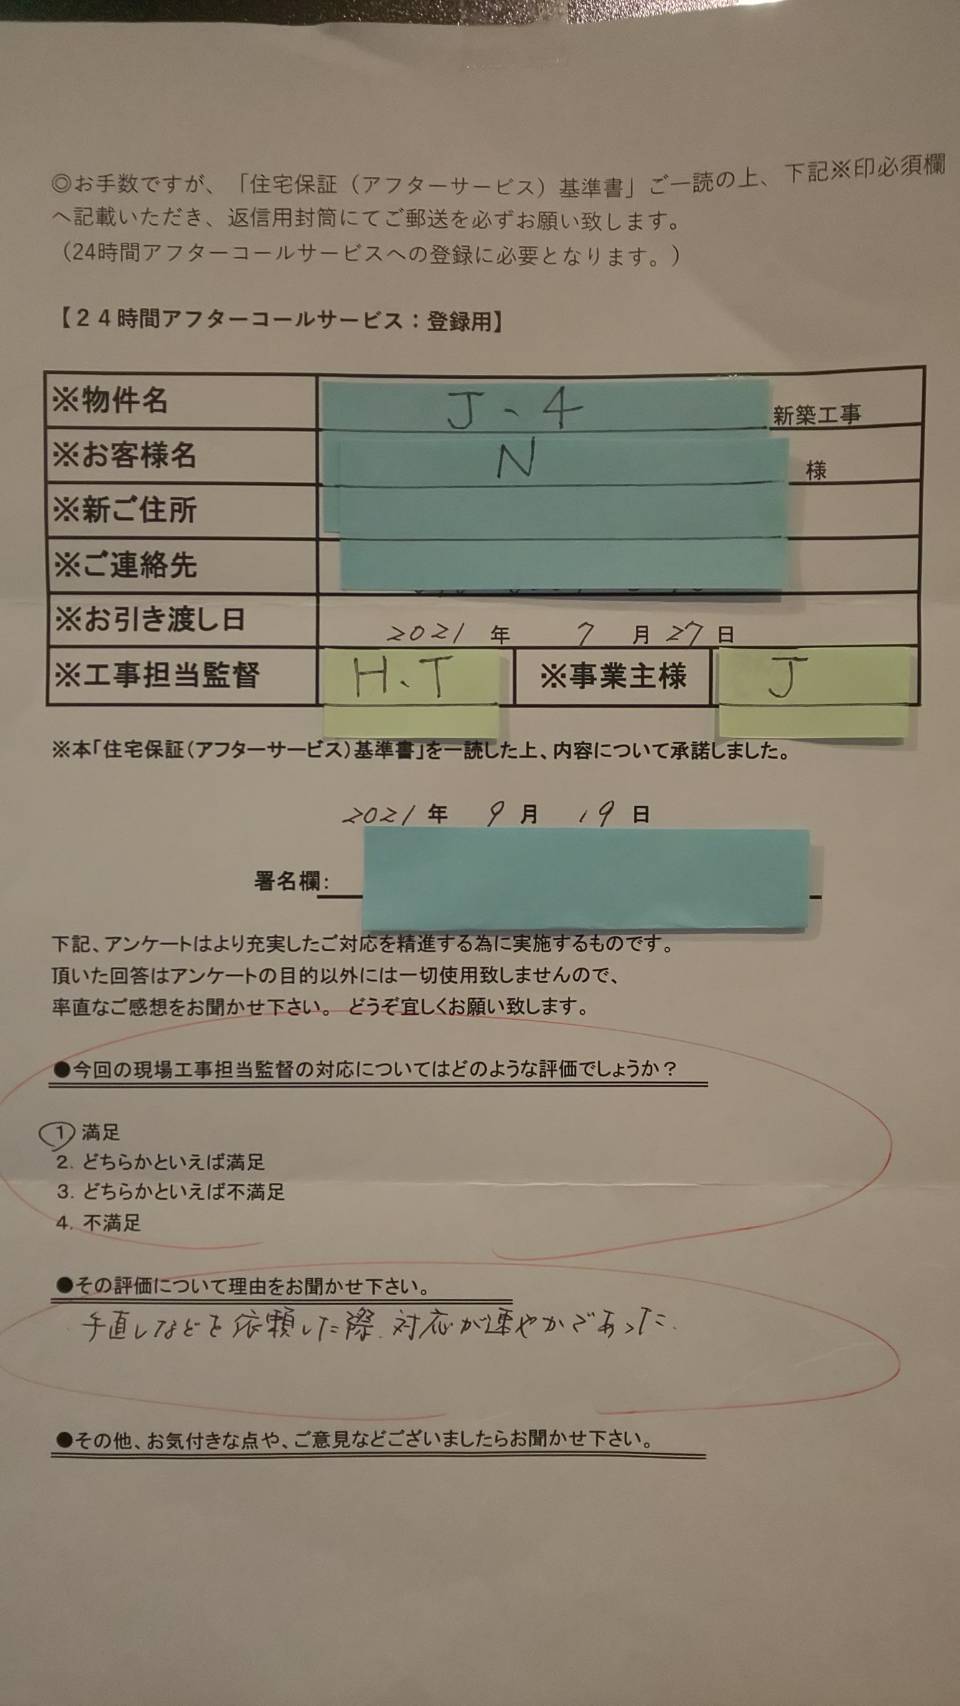 ◎お手数ですが、「住宅保証（アフターサービス）基準書」ご一読の上、下記※印必須欄
へ記載いただき、返信用封筒にてご郵送を必ずお願い致します。
（24時間アフターコールサービスへの登録に必要となります。）
【２４時間アフターコールサービス：登録用】
※物件名 J-4 新築工事
※お客様名 N 様
※新ご住所
※ご連絡先
※お引き渡し日 2021 年 7 月 27 日
※工事担当監督 H.T ※事業主様 J
※本「住宅保証（アフターサービス）基準書」を一読した上、内容について承諾しました。
2021 年 9 月 19 日
署名欄：
下記、アンケートはより充実したご対応を精進する為に実施するものです。
頂いた回答はアンケートの目的以外には一切使用致しませんので、
率直なご感想をお聞かせ下さい。 どうぞ宜しくお願い致します。
●今回の現場工事担当監督の対応についてはどのような評価でしょうか？
1 満足
2. どちらかといえば満足
3. どちらかといえば不満足
4. 不満足
●その評価について理由をお聞かせ下さい。
手直しなどを依頼した際、対応が速やかであった.
●その他、お気付きな点や、ご意見などございましたらお聞かせ下さい。